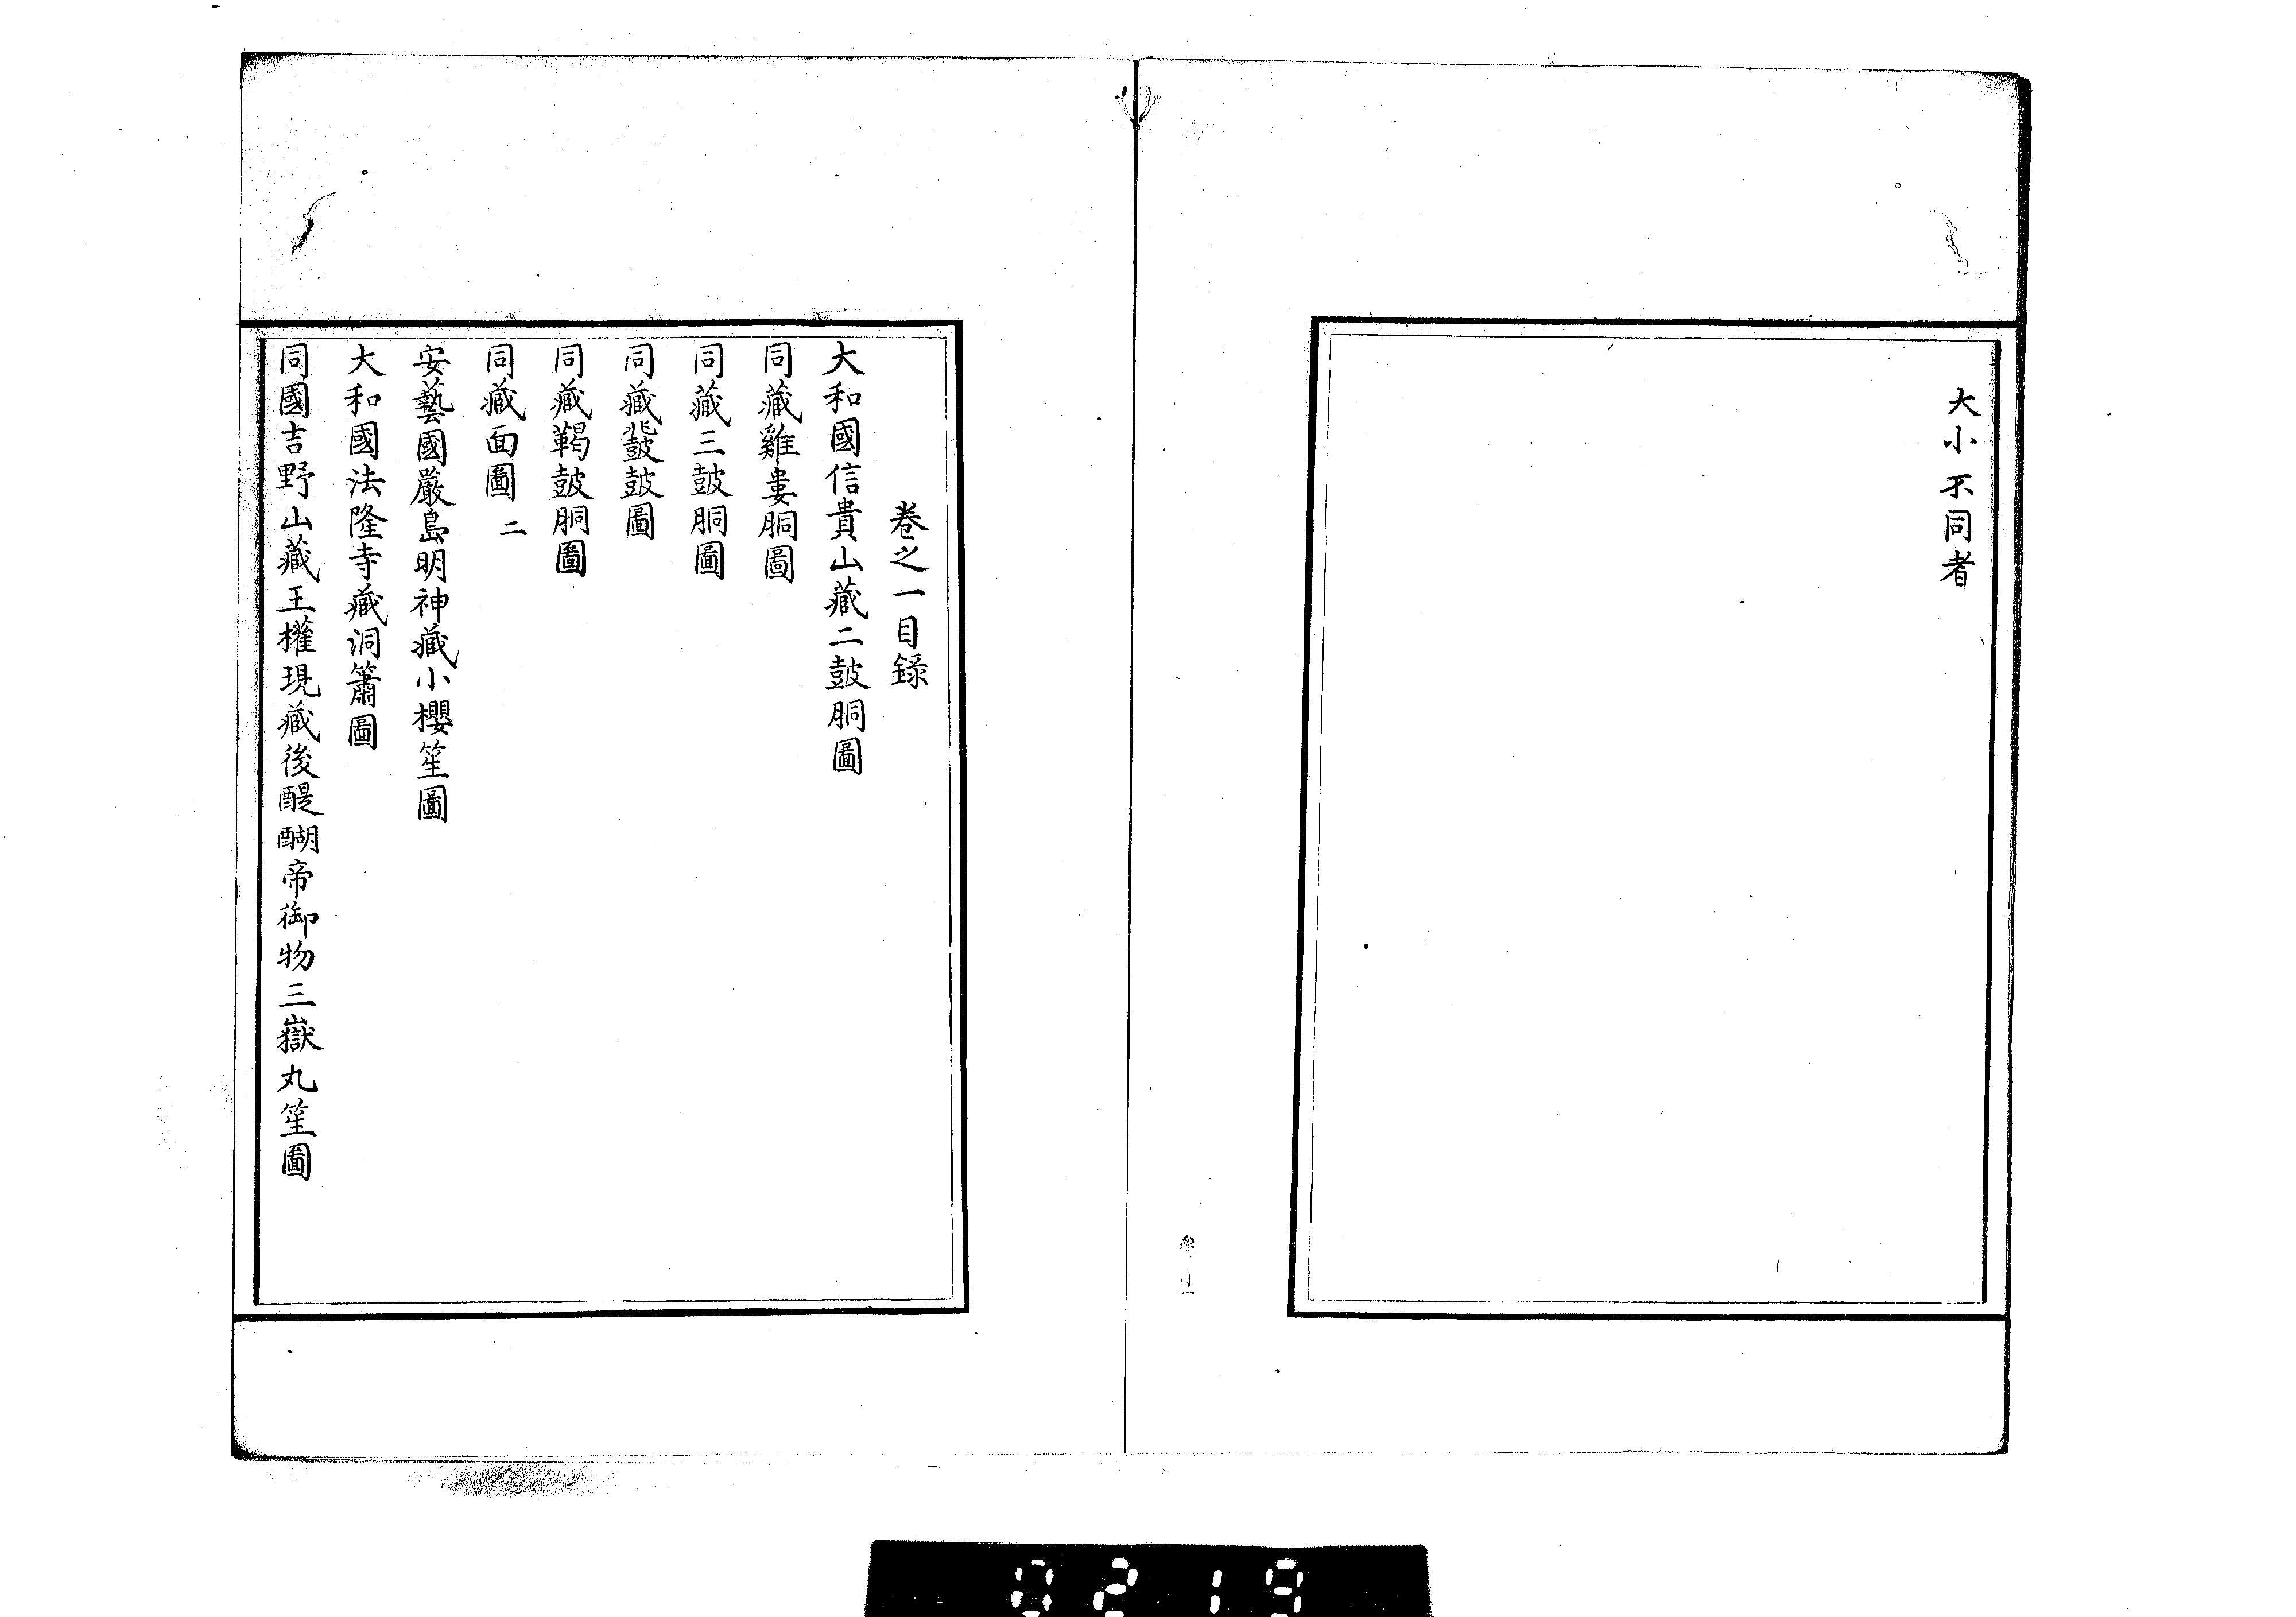 大小不同者
卷之一目録
大和國信貴山藏二鼓胴圖
同藏雞婁胴圖
同藏三鼓胴圖
同藏鼗鼓圖
同藏鞨鼓胴圖
同藏面圖 二
安藝國嚴島明神藏小櫻笙圖
大和國法隆寺藏洞簫圖
同國吉野山藏王權現藏後醍醐帝御物三嶽丸笙圖
0219